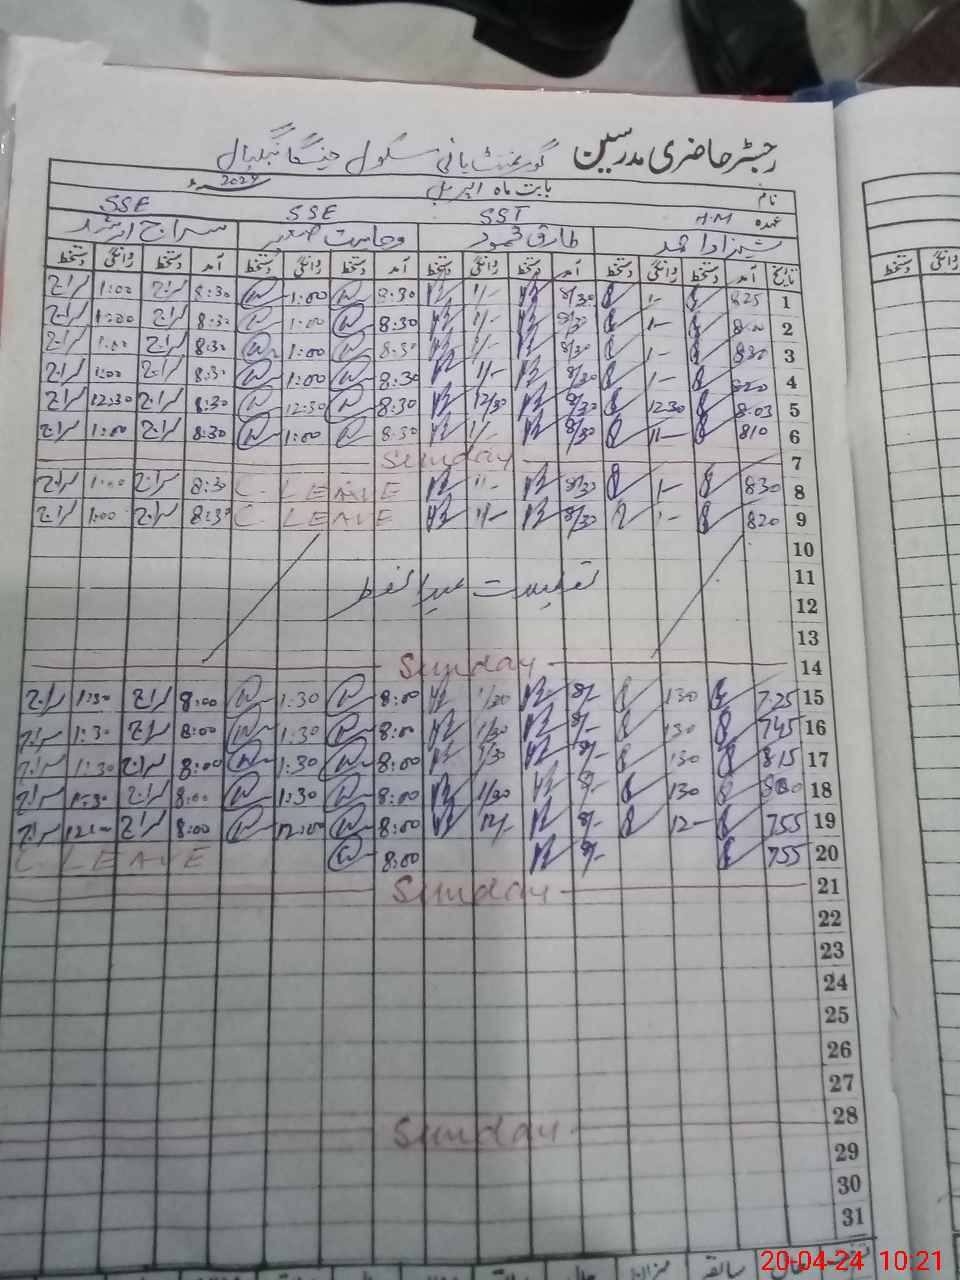 رجسٹر حاضری مدرسین گورنمنٹ ہائی سکول
نام بابت ماہ اپریل 2024
عہدہ H.M SST SSE SSE
شیراز احمد طارق محمود وجاہت صغیر سراج ارشد
تاریخ آمد دستخط روانگی دستخط آمد دستخط روانگی دستخط آمد دستخط روانگی دستخط آمد دستخط روانگی دستخط
1 825 1- 8/30 1/- 8:30 1:00 8:30 سراج 1:00 سراج
2 800 1- 8/30 1/- 8:30 1:00 8:30 سراج 1:00 سراج
3 830 1- 8/30 1/- 8:30 1:00 8:30 سراج 1:00 سراج
4 820 1- 8/30 1/- 8:30 1:00 8:30 سراج 1:00 سراج
5 8:03 1230 8/30 12/30 8:30 12:30 8:30 سراج 12:30 سراج
6 810 1- 8/30 1/- 8:30 1:00 8:30 سراج 1:00 سراج
7 Sunday
8 830 1- 8/30 1/- C. LEAVE 8:30 سراج 1:00 سراج
9 820 1- 8/30 1/- C. LEAVE 8:30 سراج 1:00 سراج
10
11 تعطیلات عیدالفطر
12
13
14 Sunday
15 725 130 8/- 1/30 8:00 1:30 8:00 سراج 1:30 سراج
16 745 130 8/- 1/30 8:00 1:30 8:00 سراج 1:30 سراج
17 815 130 8/- 1/30 8:00 1:30 8:00 سراج 1:30 سراج
18 800 130 8/- 1/30 8:00 1:30 8:00 سراج 1:30 سراج
19 755 12- 8/- 12/- 8:00 12:00 8:00 سراج 12:00 سراج
20 755 8/- 8:00 C. LEAVE
21 Sunday
22
23
24
25
26
27
28 Sunday
29
30
31
سابقہ
20-04-24 10:21
دستخط روانگی